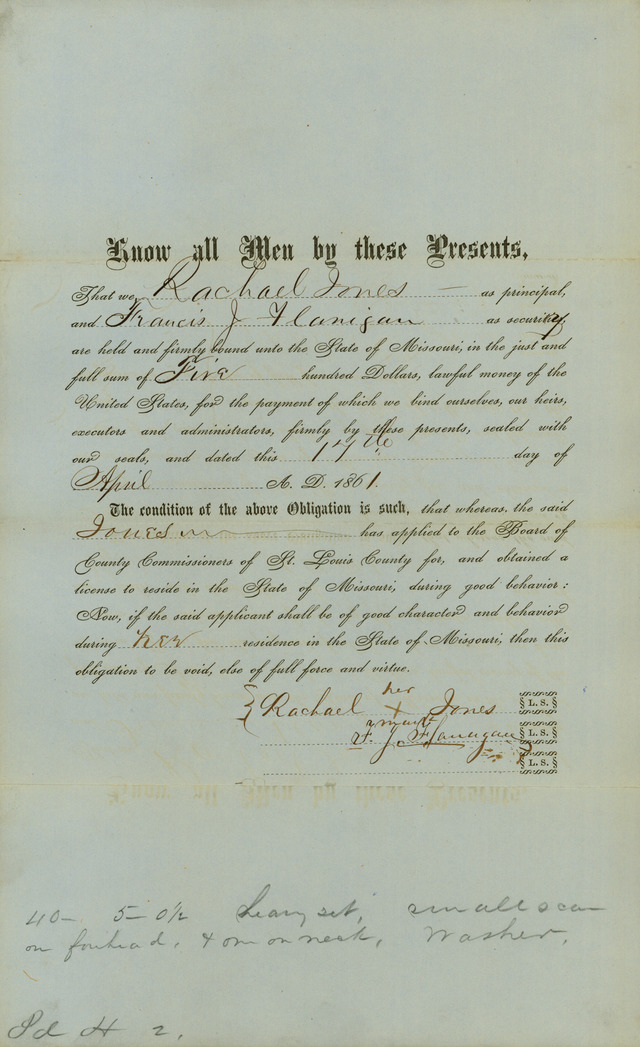 Know all Men by these Presents,
That we, Rachael Jones — as principal,
and Francis J Flanigan as security
are held and firmly bound unto the State of Missouri, in the just and
full sum of Five hundred Dollars, lawful money of the
United States, for the payment of which we bind ourselves, our heirs,
executors and administrators, firmly by these presents, sealed with
our seals, and dated this 17th day of
April A. D. 1861.
The condition of the above Obligation is such, that whereas the said
Jones has applied to the Board of
County Commissioners of St. Louis County for, and obtained a
license to reside in the State of Missouri, during good behavior:
Now, if the said applicant shall be of good character and behavior
during her residence in the State of Missouri, then this
obligation to be void, else of full force and virtue.
her
Rachael + Jones L. S.
mark
F. J. Flanagan L. S.
L. S.
40 - 5-0½ heavy set, small scar
on forhead, & on on neck, Washer,
Pd H 2.